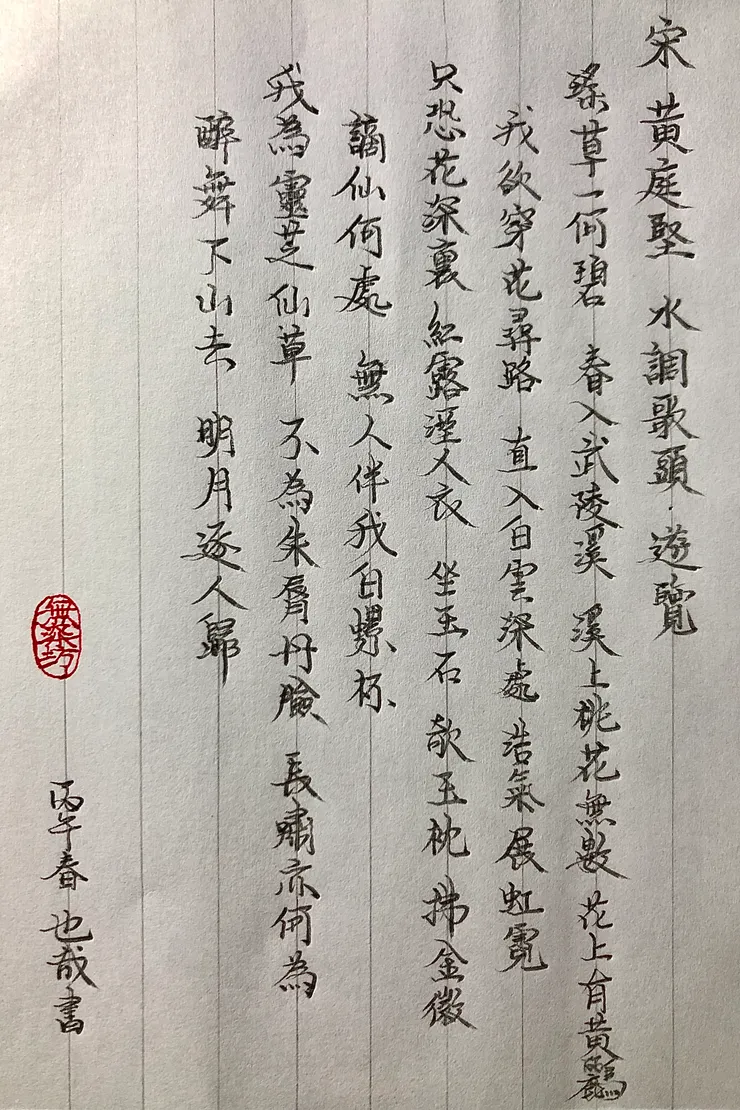 宋 黃庭堅 水調歌頭·遊覽
瑤草一何碧 春入武陵溪 溪上桃花無數 花上有黃鸝
我欲穿花尋路 直入白雲深處 浩氣展虹霓
只恐花深裏 紅露溼人衣 坐玉石 欹玉枕 拂金徽
謫仙何處 無人伴我白螺杯
我為靈芝仙草 不為朱脣丹臉 長嘯亦何為
醉舞下山去 明月逐人歸
丙午春 也哉書